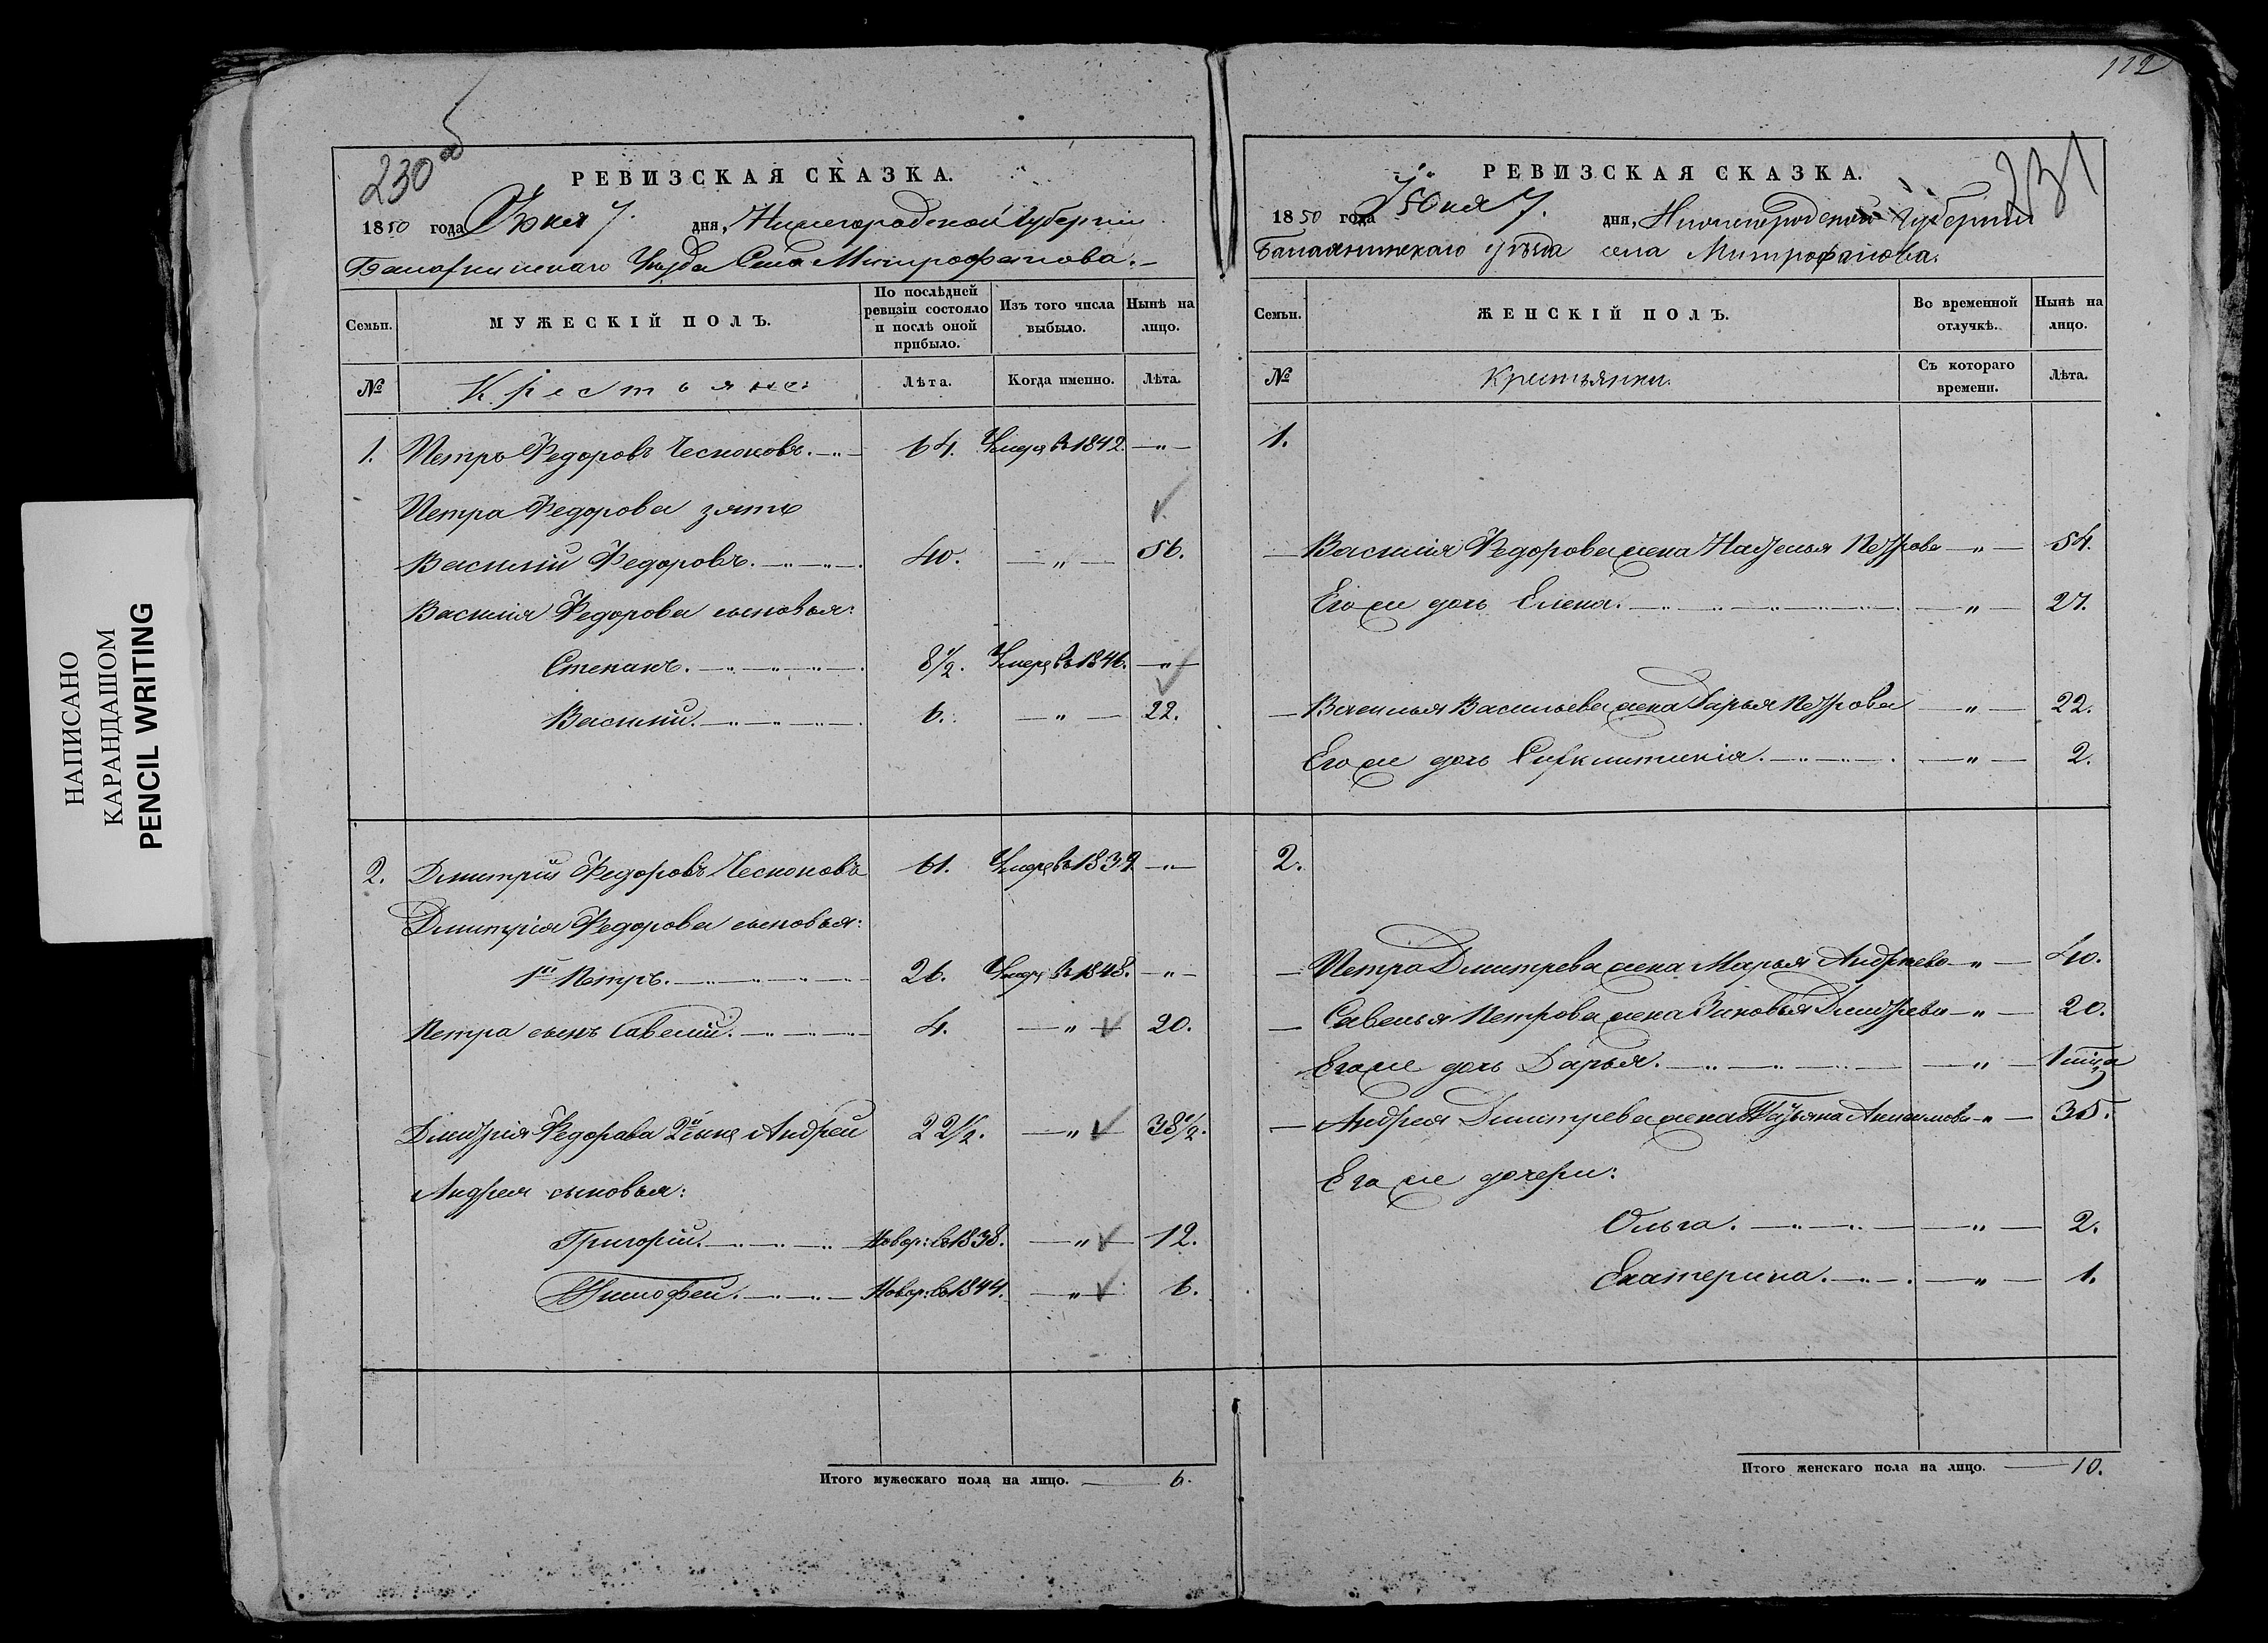 НАПИСАНО
КАРАНДАШОМ
PENCIL WRITING
230 об
РЕВИЗСКАЯ СКАЗКА.
1850 года Іюня 7. дня, Нижегородской Губерніи
Балахнинскаго Уѣзда Села Митрофанова.
Семьи. МУЖЕСКІЙ ПОЛЪ. По послѣдней ревизіи состояло и послѣ оной прибыло. Изъ того числа выбыло. Нынѣ на лицо.
№ Крестьяне: Лѣта. Когда именно. Лѣта.
1. Петръ Федоровъ Чесноковъ. 64. Умеръ въ 1842. "
Петра Федорова зять
Василій Федоровъ. 40. " 56.
Василія Федорова сыновья:
Степанъ. 8 1/2. Умеръ въ 1846. "
Василій. 6. " 22.
2. Дмитрій Федоровъ Чесноковъ 61. Умеръ въ 1839 "
Дмитрія Федорова сыновья:
1й Петръ. 26. Умеръ въ 1848. "
Петра сынъ Савелій. 4. " 20.
Дмитрія Федорова 2й сынъ Андрей 22 1/2. " 38 1/2.
Андрея сыновья:
Григорій. Новор: въ 1838. " 12.
Тимофей. Новор: въ 1844. " 6.
Итого мужескаго пола на лицо. 6.
112
231
РЕВИЗСКАЯ СКАЗКА.
1850 года Іюня 7. дня, Нижегородской Губерніи
Балахнинскаго уѣзда села Митрофанова.
Семьи. ЖЕНСКІЙ ПОЛЪ. Во временной отлучкѣ. Нынѣ на лицо.
№ Крестьянки. Съ котораго времени. Лѣта.
1.
Василія Федорова жена Наталья Петрова " 54.
Его же дочь Елена. " 27.
Василья Васильева жена Дарья Петрова " 22.
Его же дочь " 2.
2.
Петра Дмитрева жена Марья Андреева " 40.
Савелья Петрова жена Зиновья Дмитрева " 20.
Его же дочь Дарья. " 1
Андрея Дмитрева жена Татьяна " 35.
Его же дочери:
Ольга. " 2.
Екатерина. " 1.
Итого женскаго пола на лицо. 10.